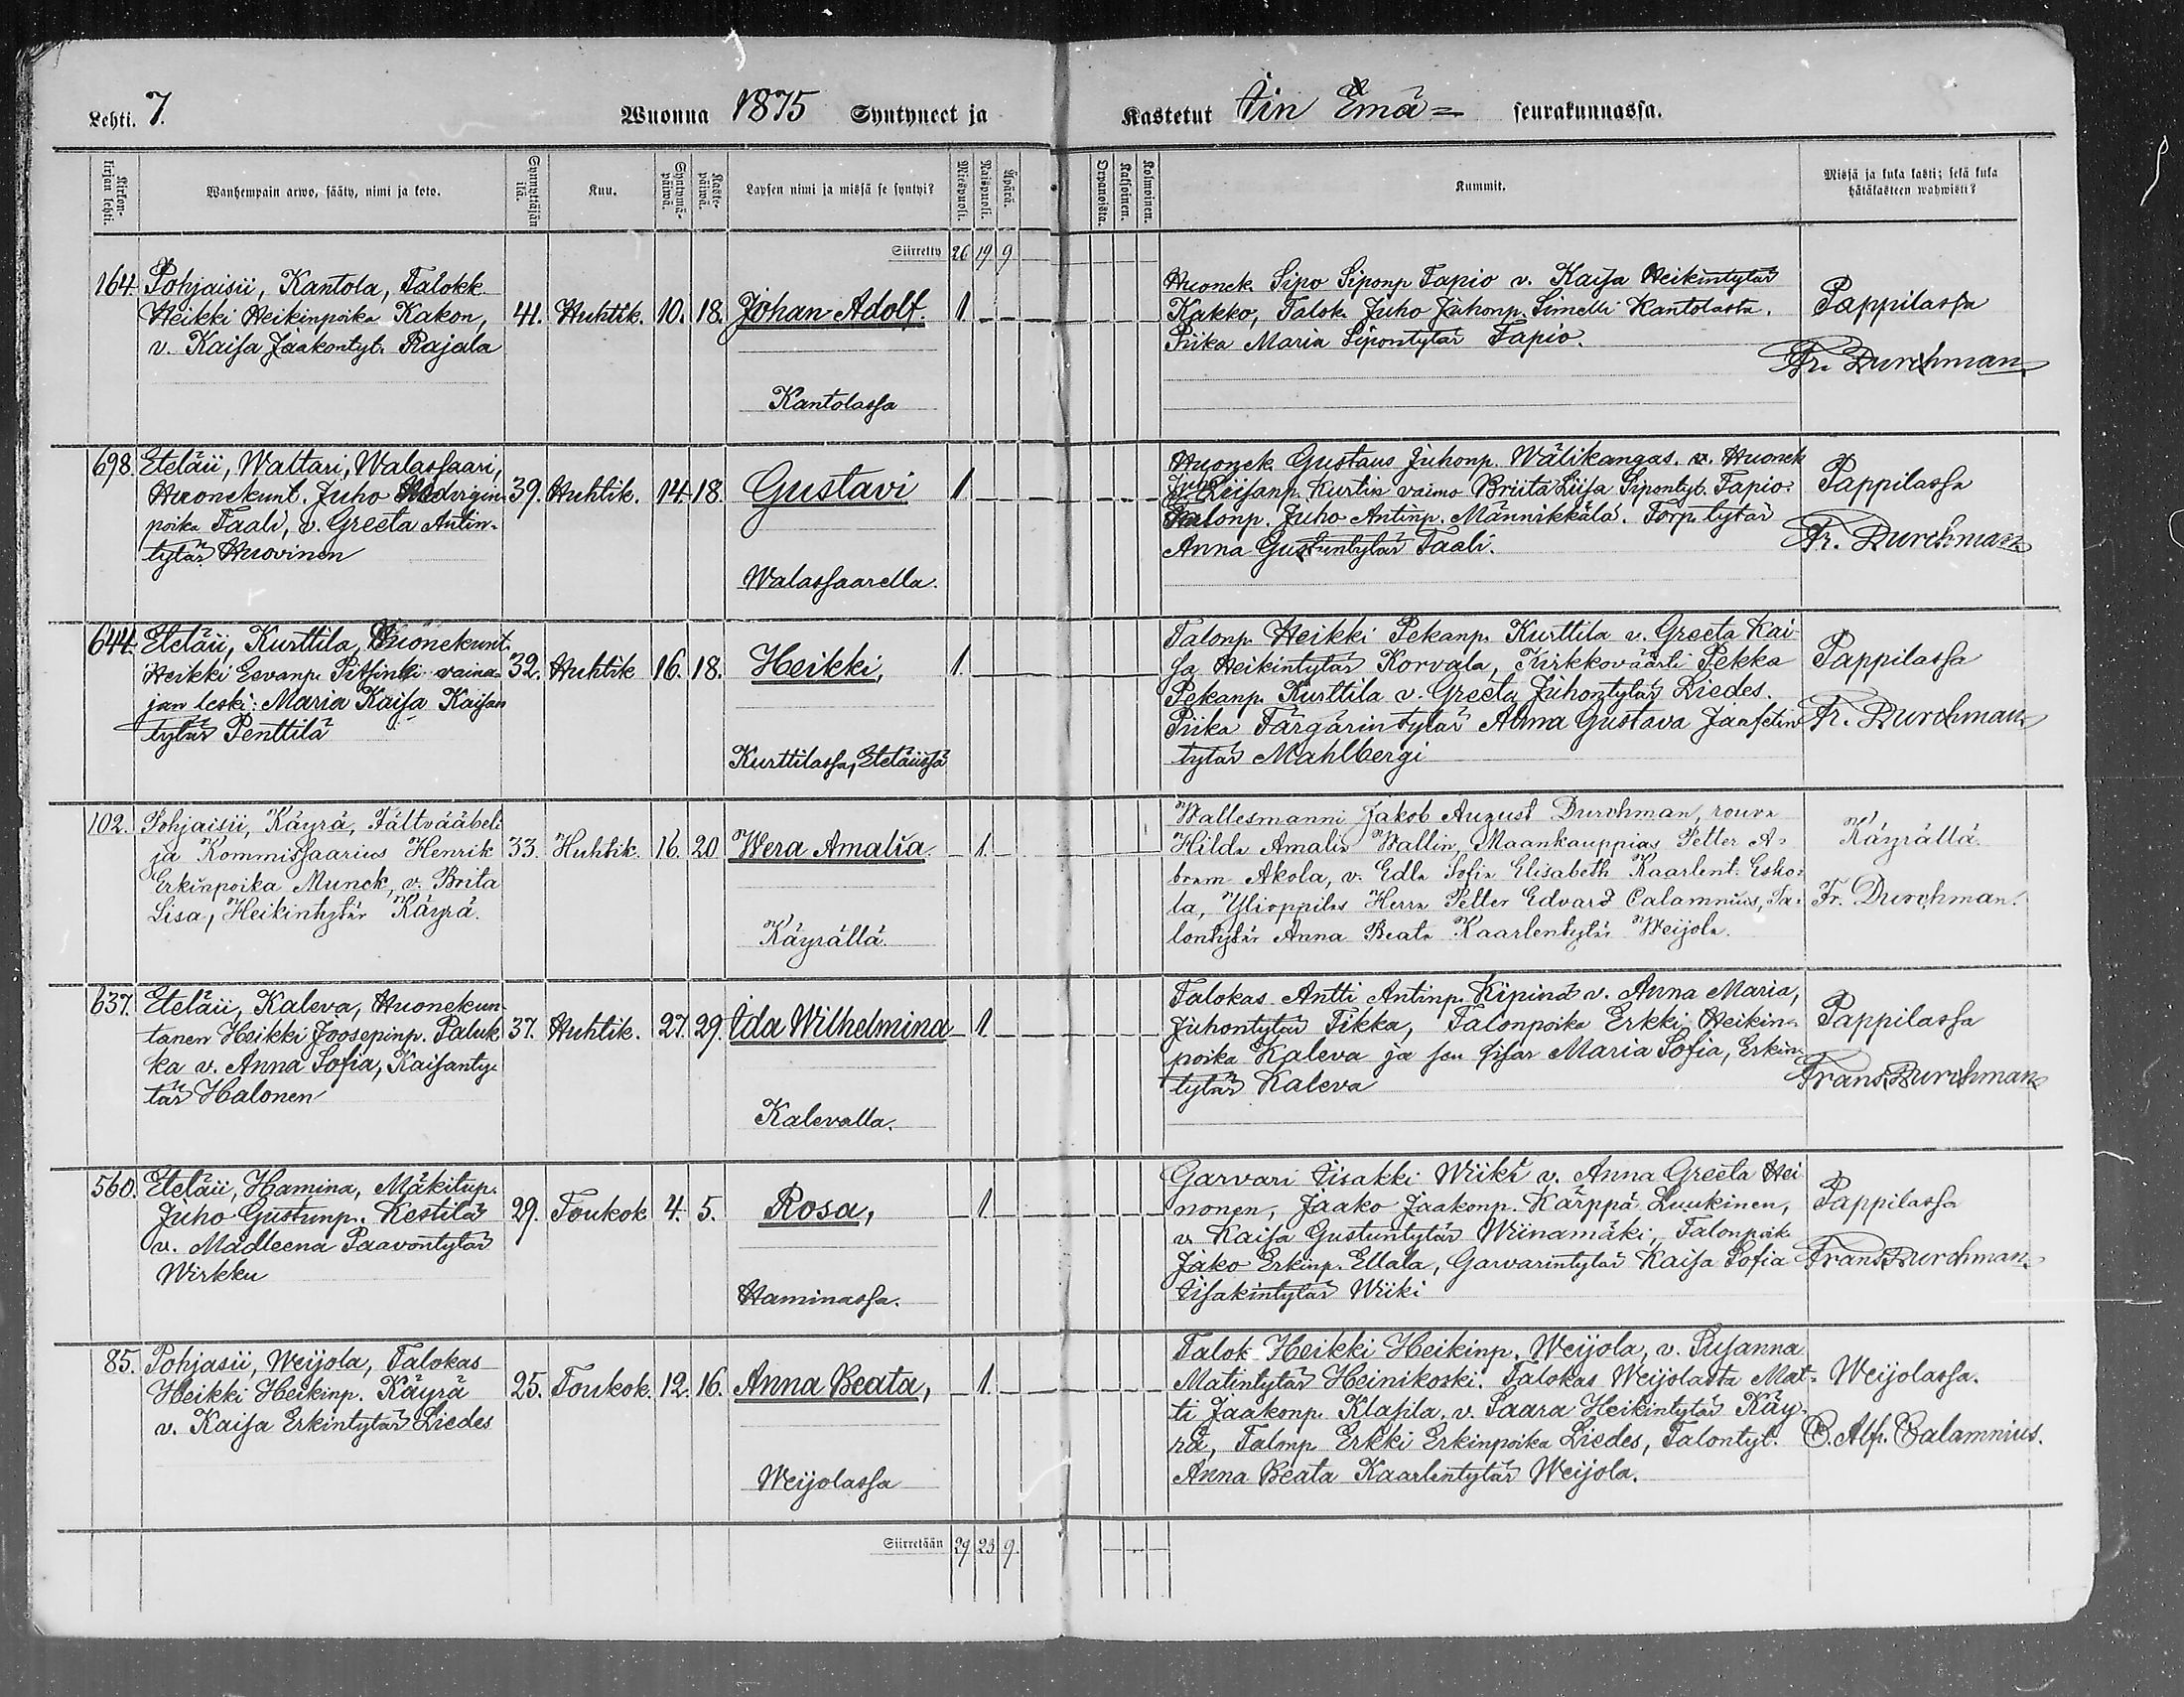 Lehti. 7. Wuonna 1875 Syntyneet ja Kastetut Iin Emä= seurakunnassa.
Kirkonkirjan lehti.
Wanhempain arwo, sääty, nimi ja koto.
Synnyttäjän ikä.
Kuu.
Syntymäpäiwä.
Kastepäiwä.
Lapsen nimi ja missä se syntyi?
Miespuoli.
Naispuoli.
Äpärä.
Kaksoinen.
Kolmoinen.
Kummit.
Missä ja kuka kasti; sekä kuka
hätäkasteen wahwisti?
Siirretty 26 19 9
164. Pohjaisii, Kantola, Talokk.
Heikki Heikinpoika Kakon,
v. Kaisa Jaakontyt. Rajala
41. Huhtik. 10. 18. Johan Adolf. 1.
Kantolassa
Huonek. Sipo Siponp. Tapio v. Kaisa Heikintytär
Kakko, Talok. Juho Juhonp. Simelli Kantolasta.
Piika Maria Sipontytär Tapio.
Pappilassa
Fr. Durchman
698. Eteläii, Waltari, Walassaari,
Huonekunt. Juho Hedvigin-
poika Taali, v. Greeta Antin-
tytär Huovinen
39. Huhtik. 14. 18. Gustavi 1
Walassaarella.
Huonek. Gustaus Juhonp. Wälikangas. v. Huonek
Juho Liisanp. Kurtin vaimo Briita Liisa Sipontyt. Tapio.
Talonp. Juho Antinp. Männikkälä. Torp. tytär
Anna Gustuntytär Taali.
Pappilassa
Fr. Durchman
644. Eteläii, Kurttila, Huonekunt.
Heikki Eevanp. Pitsinki vaina-
jan leski: Maria Kaisa Kaisan
tytär Penttilä
32. Huhtik 16. 18. Heikki, 1.
Kurttilassa, Eteläiissä
Talonp. Heikki Pekanp. Kurttila v. Greeta Kai-
sa Heikintytär Korvala, Kirkkoväärti Pekka
Pekanp. Kurttila v. Greeta Juhontytär Liedes.
Piika Färgärin tytär Anna Gustava Jaafetin
tytär Mahlbergi
Pappilassa
Fr. Durchman
102. Pohjaisii, Käyrä, Fältvääbeli
ja Kommissaarius Henrik
Erkinpoika Munck, v. Brita
Lisa, Heikintytär Käyrä.
33. Huhtik. 16. 20 Wera Amalia. 1.
Käyrällä.
Wallesmanni Jakob August Durchman, rouva
Hilda Amalia Wallin, Maankauppias Petter A-
bram Akola, v. Edla Sofia Elisabeth Kaarlent. Esko-
la, Ylioppilas Herra Petter Edvard Calamnius, Ta-
lontytär Anna Beata Kaarlentytär Weijola.
Käyrällä.
Fr. Durchman.
637. Eteläii, Kaleva, Huonekun-
tanen Heikki Joosepinp. Paluk
ka v. Anna Sofia, Kaisanty-
tär Halonen
37. Huhtik. 27. 29. Ida Wilhelmina 1.
Kalevalla.
Talokas Antti Antinp. Kipinä v. Anna Maria,
Juhontytär Tikka, Talonpoika Erkki Heikin-
poika Kaleva ja sen sisar Maria Sofia, Erkin-
tytär Kaleva
Pappilassa
Frans Durchman
560. Eteläii, Hamina, Mäkitup.
Juho Gustunp. Kestilä
v. Madleena Paavontytär
Wirkku
29. Toukok 4. 5. Rosa, 1.
Haminassa.
Garvari Iisakki Wiiki v. Anna Greeta Hei
nonen, Jaako Jaakonp. Kärppä Luukinen,
v. Kaisa Gustuntytär Wiinamäki, Talonpoik.
Jako Erkinp. Ellala, Garvarintytär Kaisa Sofia
Iisakintytär Wiiki
Pappilassa
Frans Durchman.
85. Pohjasii, Weijola, Talokas
Heikki Heikinp. Käyrä
v. Kaisa Erkintytär Liedes
25. Toukok. 12. 16. Anna Beata, 1.
Weijolassa
Talok Heikki Heikinp. Weijola, v. Susanna
Matintytär Heinikoski. Talokas Weijolasta Mat-
ti Jaakonp. Klasila, v. Saara Heikintytär Käy-
rä, Talonp Erkki Erkinpoika Liedes, Talontyt.
Anna Beata Kaarlentytär Weijola.
Weijolassa.
C. Alf. Calamnius.
Siirretään 29 23 9.